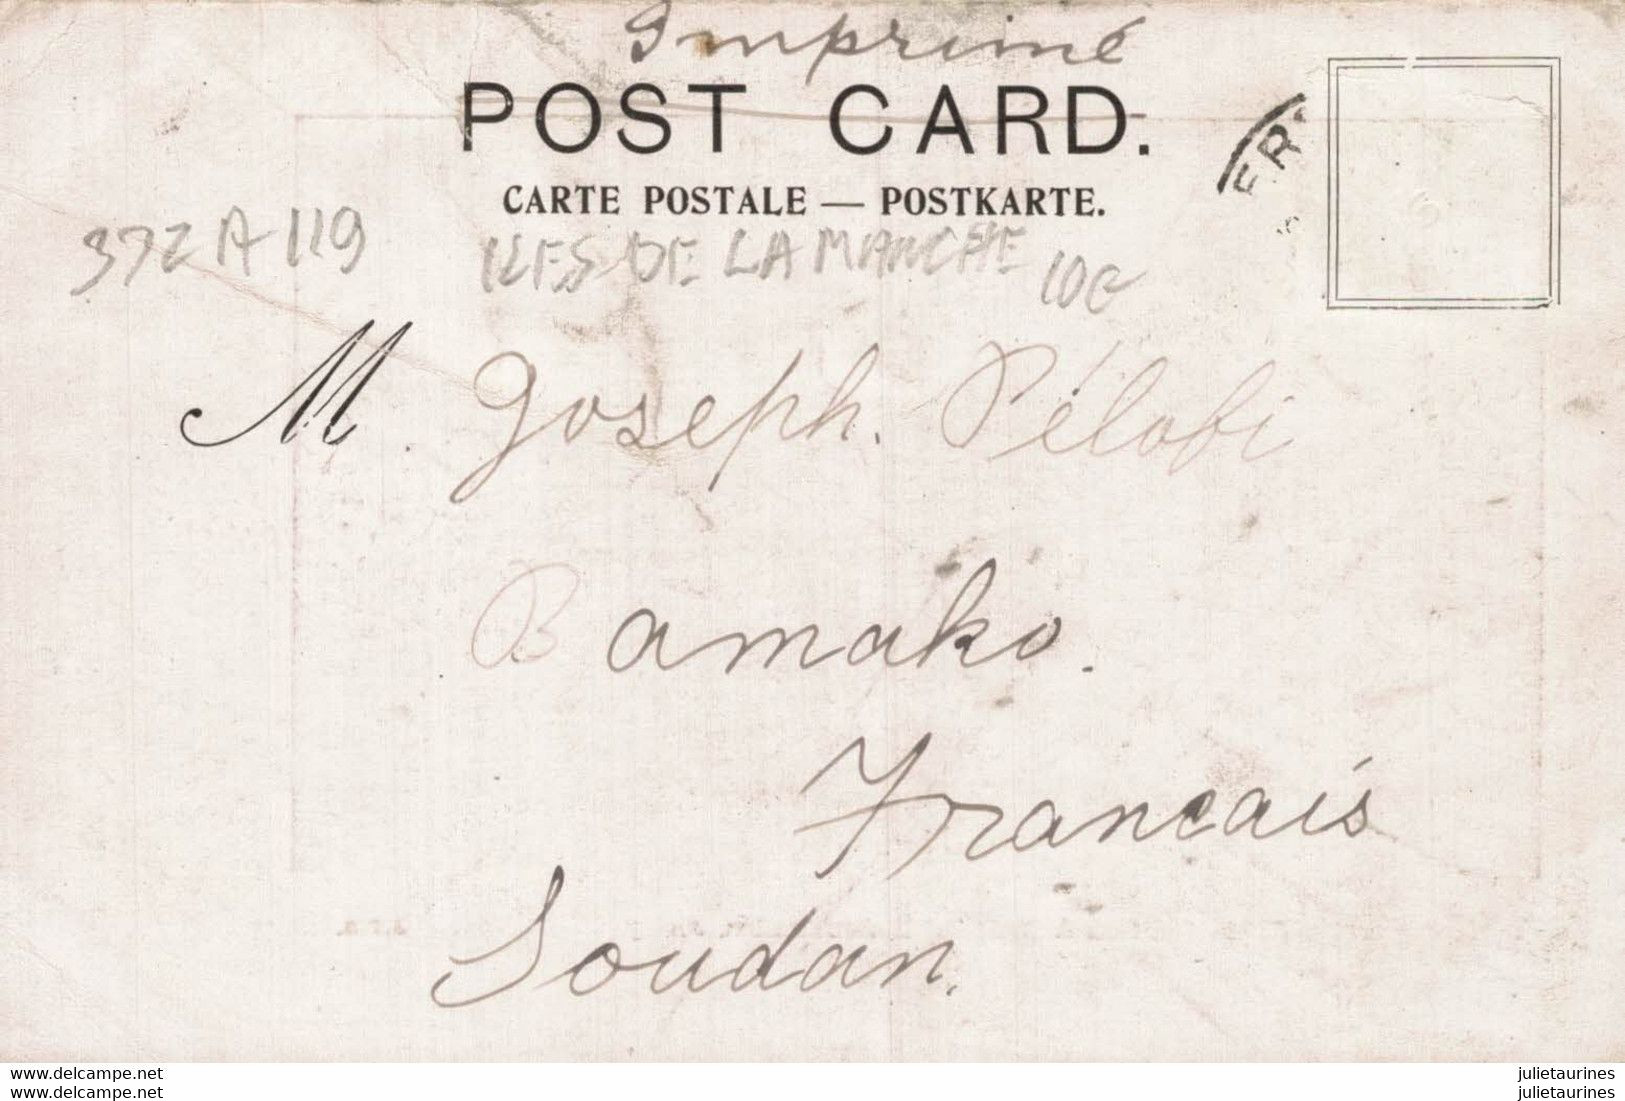 Imprimé
POST CARD.
CARTE POSTALE — POSTKARTE.
372 A 119
ILES DE LA MANCHE 10€
M. Joseph. Pélofi
Bamako.
Francais
Soudan.
www.delcampe.net
julietaurines
www.delcampe.net
julietaurines